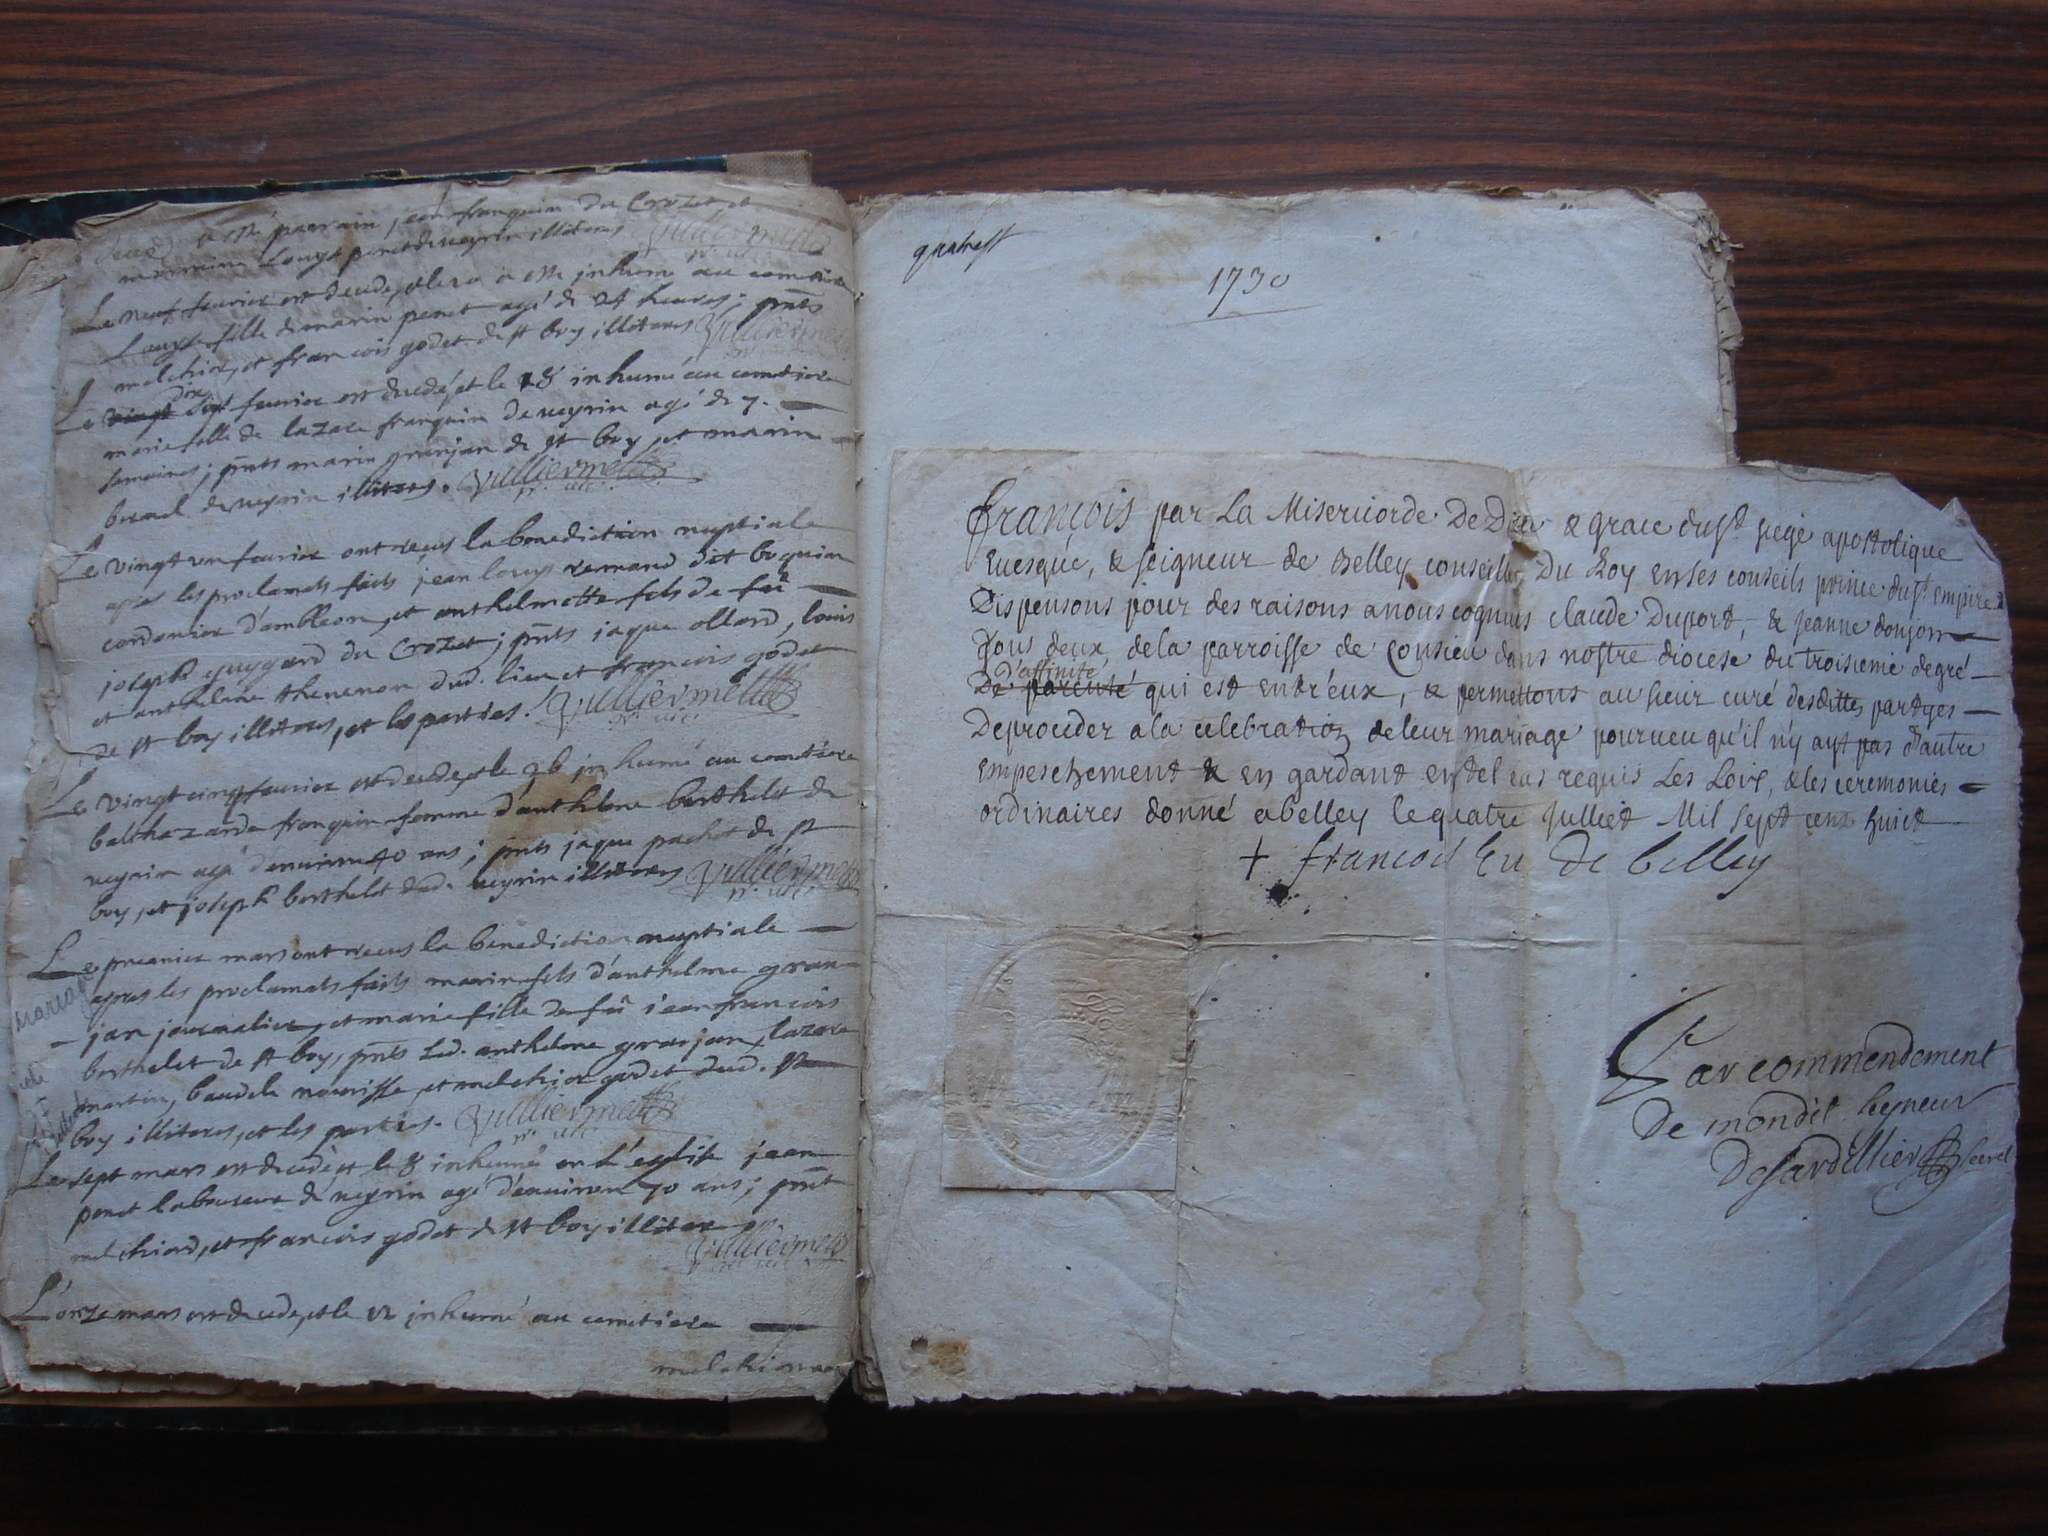 a esté parrain jean franquin du Crozet et
marraine Louyse penet de neyrin illiteres Vulliermettz
Le neuf feurier est decedé, et le 10 a esté inhumé au cemetiere
Louyse fille de marin penet agé de 24 heures; pnts
melchior, et francois godet de st boy illiteres Vulliermettz
Le vingt dix sept feurier est decedé, et le 18 inhumé au cemetiere
marie fille de lazare franquin de neyrin agé de 7.
semaines; pnts marin granjan de st boy, et marin
de neyrin illiteres. Vulliermettz
Le vingt un feurier ont receus la benediction nuptiale
apres les proclamats faits jean louys remand dit boquin
cordonier d'ambleon, et anthelmette fele de feü
joseph guygard du Crozet; pnts jaque ollard, louis
et anthelme thenenon dud. lieu et francois godet
de st boy illiteres, et les parties. Vulliermettz
Le vingt cinq feurier est decedé, et le 26 inhumé au cemetiere
balthazarde franquin femme d'anthelme berthelet de
neyrin agé d'enuiron 40 ans; pnts jaque pachot de st
boy, et joseph berthelet dud. neyrin illiteres Vulliermettz
Le premier mars ont receus la benediction nuptiale
mariage
apres les proclamats faits marin fils d'anthelme gran
- jan journalier, et marie fille de feü jean francois
berthelet de st boy, pnts led. anthelme granjan, lazare
martin, baudele nourisse, et melchior godet dud. st
boy illiteres, et les parties. Vulliermettz
Le sept mars est decedé et le 8 inhumé en l'eglise jean
penet laboureur de neyrin agé d'enuiron 70 ans; pnt
melchiord, et francois godet de st boy illiteres
Vulliermettz
L'onze mars est decedé, et le 12 inhumé au cemetiere
1730
François par La Misericorde De Dieu & grace du st siege apostolique
Euesque, & seigneur de Belley conseiller Du Roy en ses conseils prince du st empire
Dispensons pour des raisons a nous cognues claude Duport, & jeanne donjon
Tous deux de la parroisse de Consieu dans nostre diocese du troisieme degré
D'affinite
De parenté qui est entr'eux, & permettons au sieur curé desdittes partyes
De proceder a la celebration de leur mariage pourueu qu'il n'y ayt pas d'autre
empeschement & en gardant en tel cas requis Les Loix, & les ceremonies
ordinaires donné a belley le quatre Julliet Mil sept cent huict
+ francois Eu de belley
Par commendement
De mondit segneur
Desardillier secret